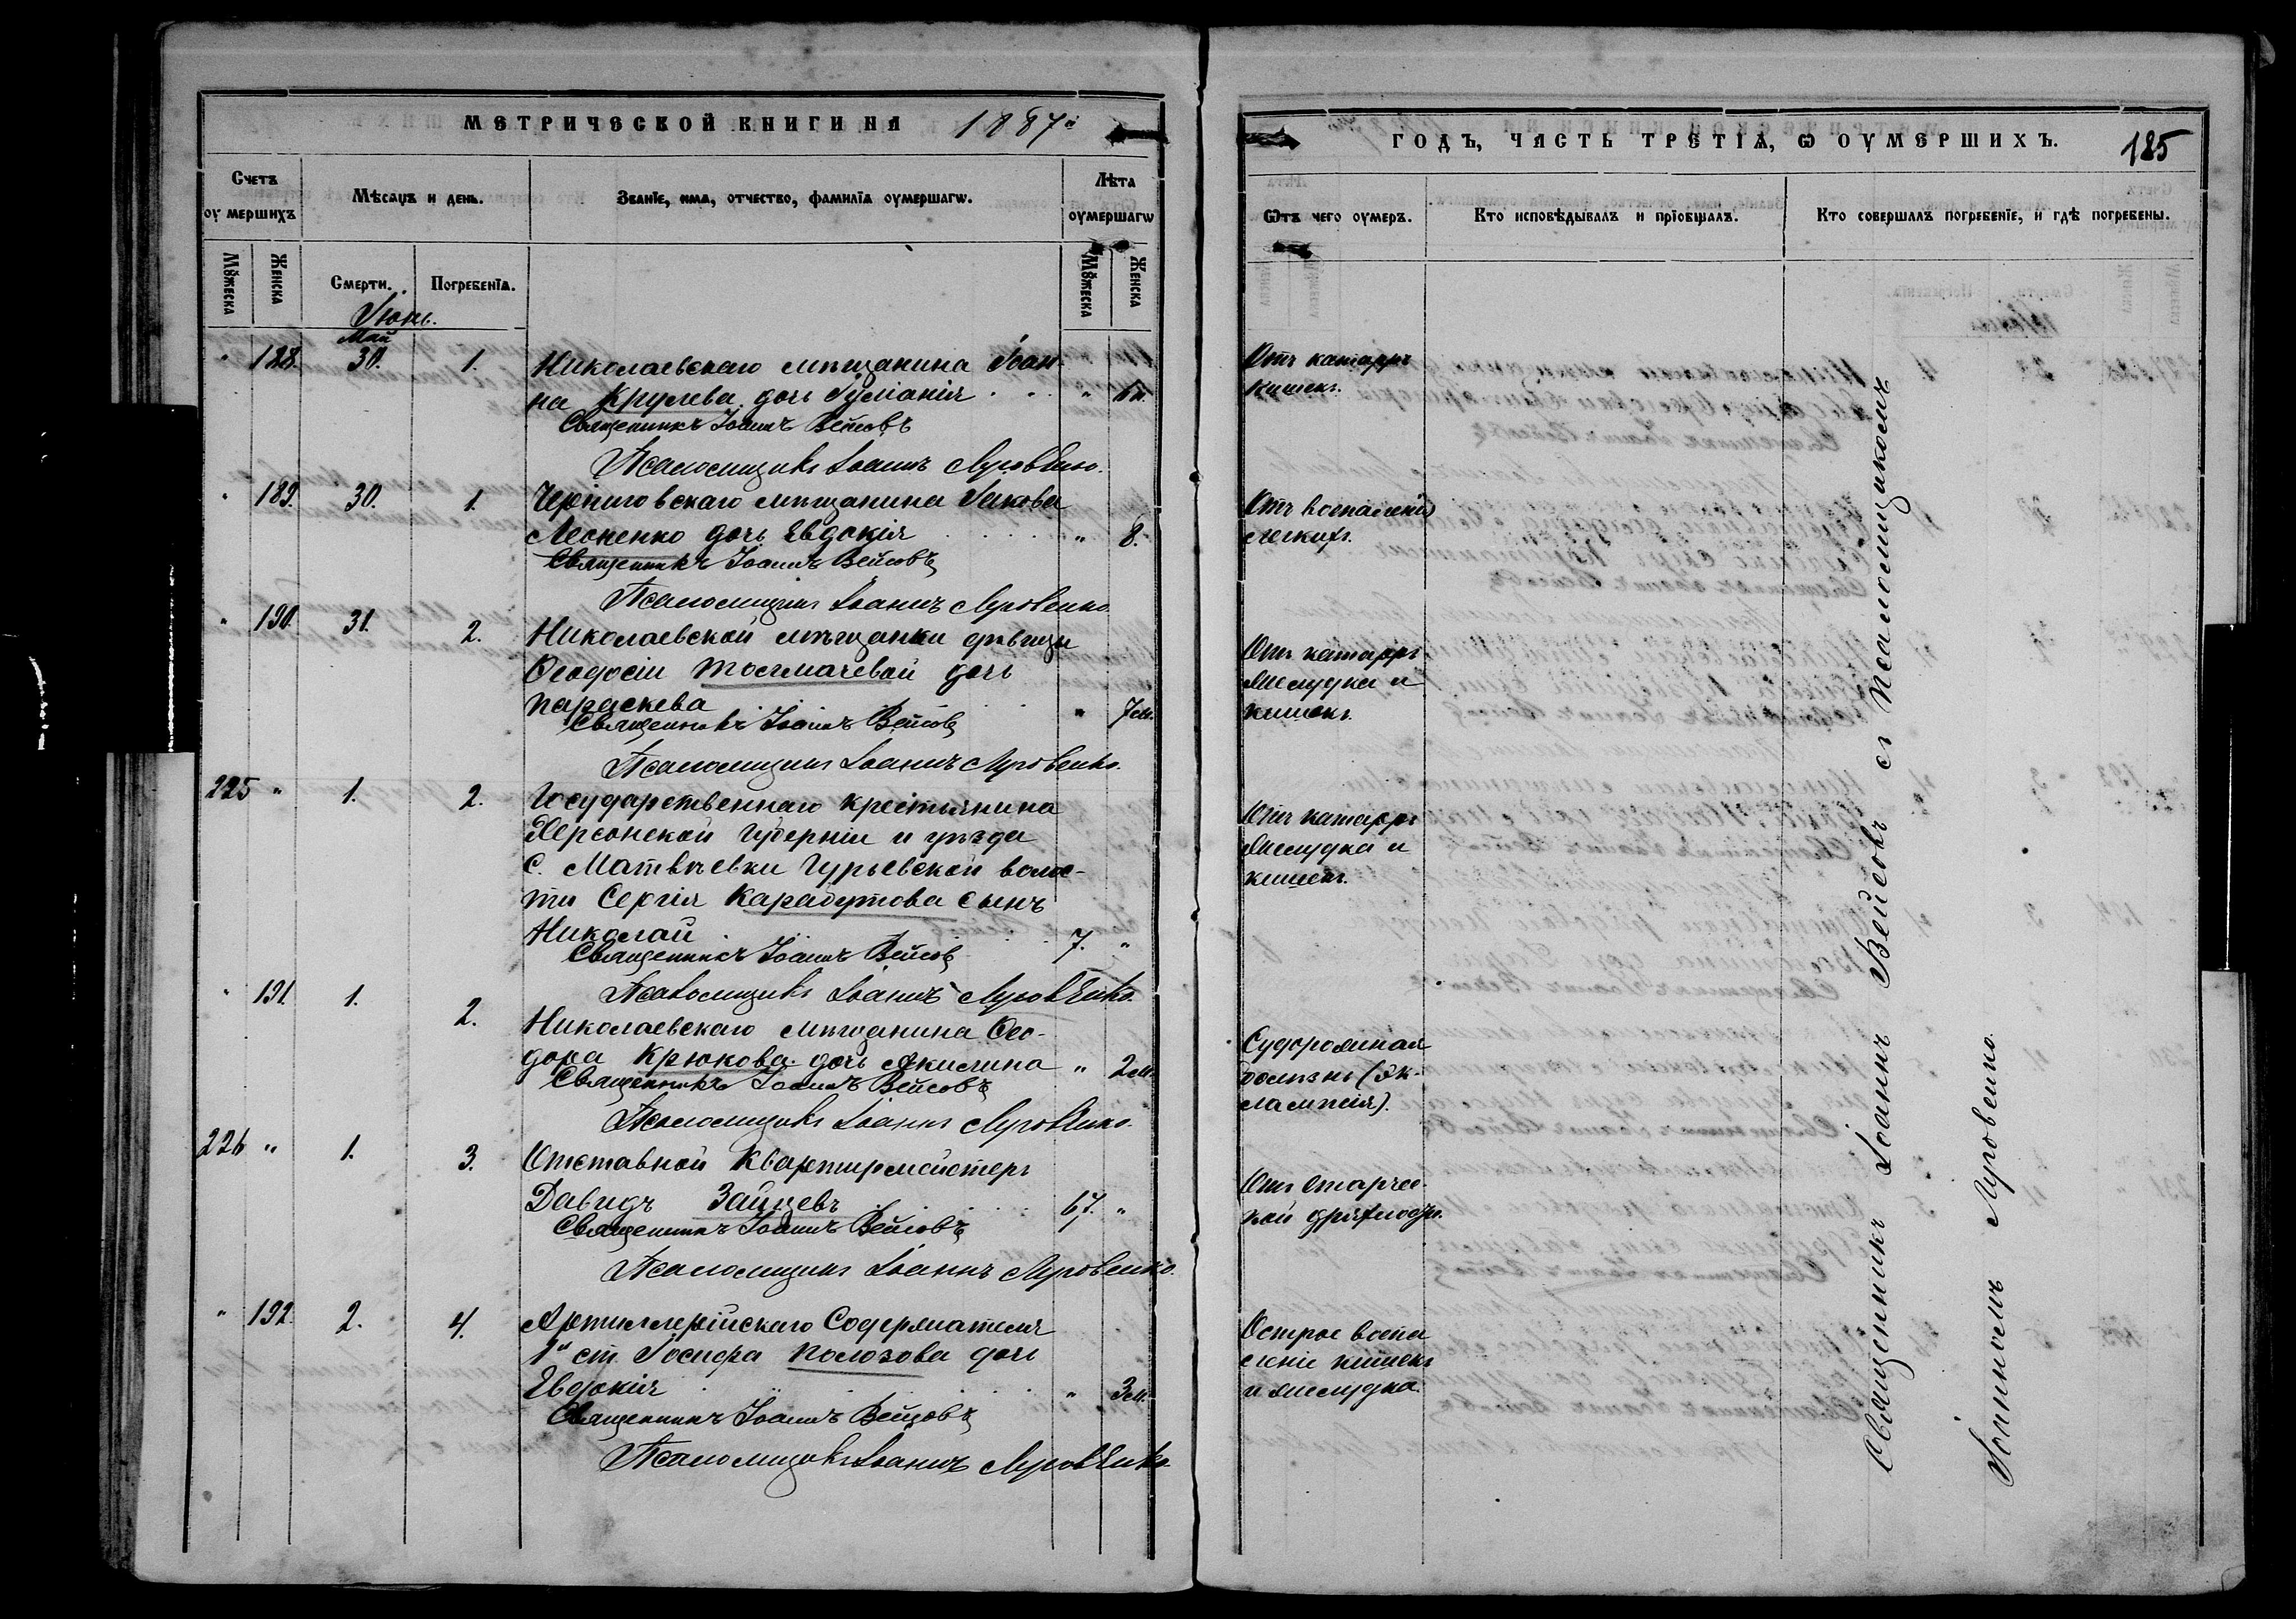 МЕТРИЧЕСКОЙ КНИГИ НА 1887й
ГОДЪ, ЧАСТЬ ТРЕТІѦ, Ѡ ОУМЕРШИХЪ.
185
Счетъ оумершихъ
Мѣсяцъ и день.
Званіе, имя, отчество, фамилія оумершагѡ.
Лѣта оумершагѡ
Ѿтъ чего оумеръ.
Кто исповѣдывалъ и пріобщалъ.
Кто совершалъ погребеніе, и гдѣ погребены.
Мꙋжеска
Женска
Смерти.
Погребенїѧ.
Мꙋжеска
Женска
Іюнь.
Май
" 188. 30. 1. Николаевскаго мѣщанина Іоан-
на Крулева дочь " Отъ катарра
кишекъ.
Священникъ Іоаннъ Вейсовъ
Псаломщикъ Іоаннъ Луговенко.
" 189. 30. 1. Черниговскаго мѣщанина Іакова
Леоненко дочь Евдокія " 8. Отъ воспаленія
легкихъ.
Священникъ Іоаннъ Вейсовъ
Псаломщикъ Іоаннъ Луговенко.
" 190. 31. 2. Николаевской мѣщанки дѣвицы
Ѳеодосіи Толмачевой дочь
Параскева " 7м. Отъ катарра
желудка и
кишекъ.
Священникъ Іоаннъ Вейсовъ
Псаломщикъ Іоаннъ Луговенко.
225 " 1. 2. Государственнаго крестьянина
Херсонской губерніи и уѣзда
с. Матвѣевки Гурьевской волос-
ти Сергія Карабутова сынъ
Николай 7. " Отъ катарра
желудка и
кишекъ.
Священникъ Іоаннъ Вейсовъ
Псаломщикъ Іоаннъ Луговенко.
" 191. 1. 2. Николаевскаго мѣщанина Ѳео-
дора Крюкова дочь Акилина " 2м. Судорожная
болѣзнь (эк-
лампсія).
Священникъ Іоаннъ Вейсовъ
Псаломщикъ Іоаннъ Луговенко.
226 " 1. 3. Отставной Квартирмейстеръ
Давидъ Зайцевъ 67. " Отъ старчес-
кой дряхлости.
Священникъ Іоаннъ Вейсовъ
Псаломщикъ Іоаннъ Луговенко.
" 192. 2. 4. Артиллерійскаго Содержателя
1й ст. Іосифа Полозова дочь
Евдокія " 3м. Острое воспа
леніе кишекъ
и желудка.
Священникъ Іоаннъ Вейсовъ
Псаломщикъ Іоаннъ Луговенко.
Священникъ Іоаннъ Вейсовъ съ Псаломщикомъ
Іоанномъ Луговенко.